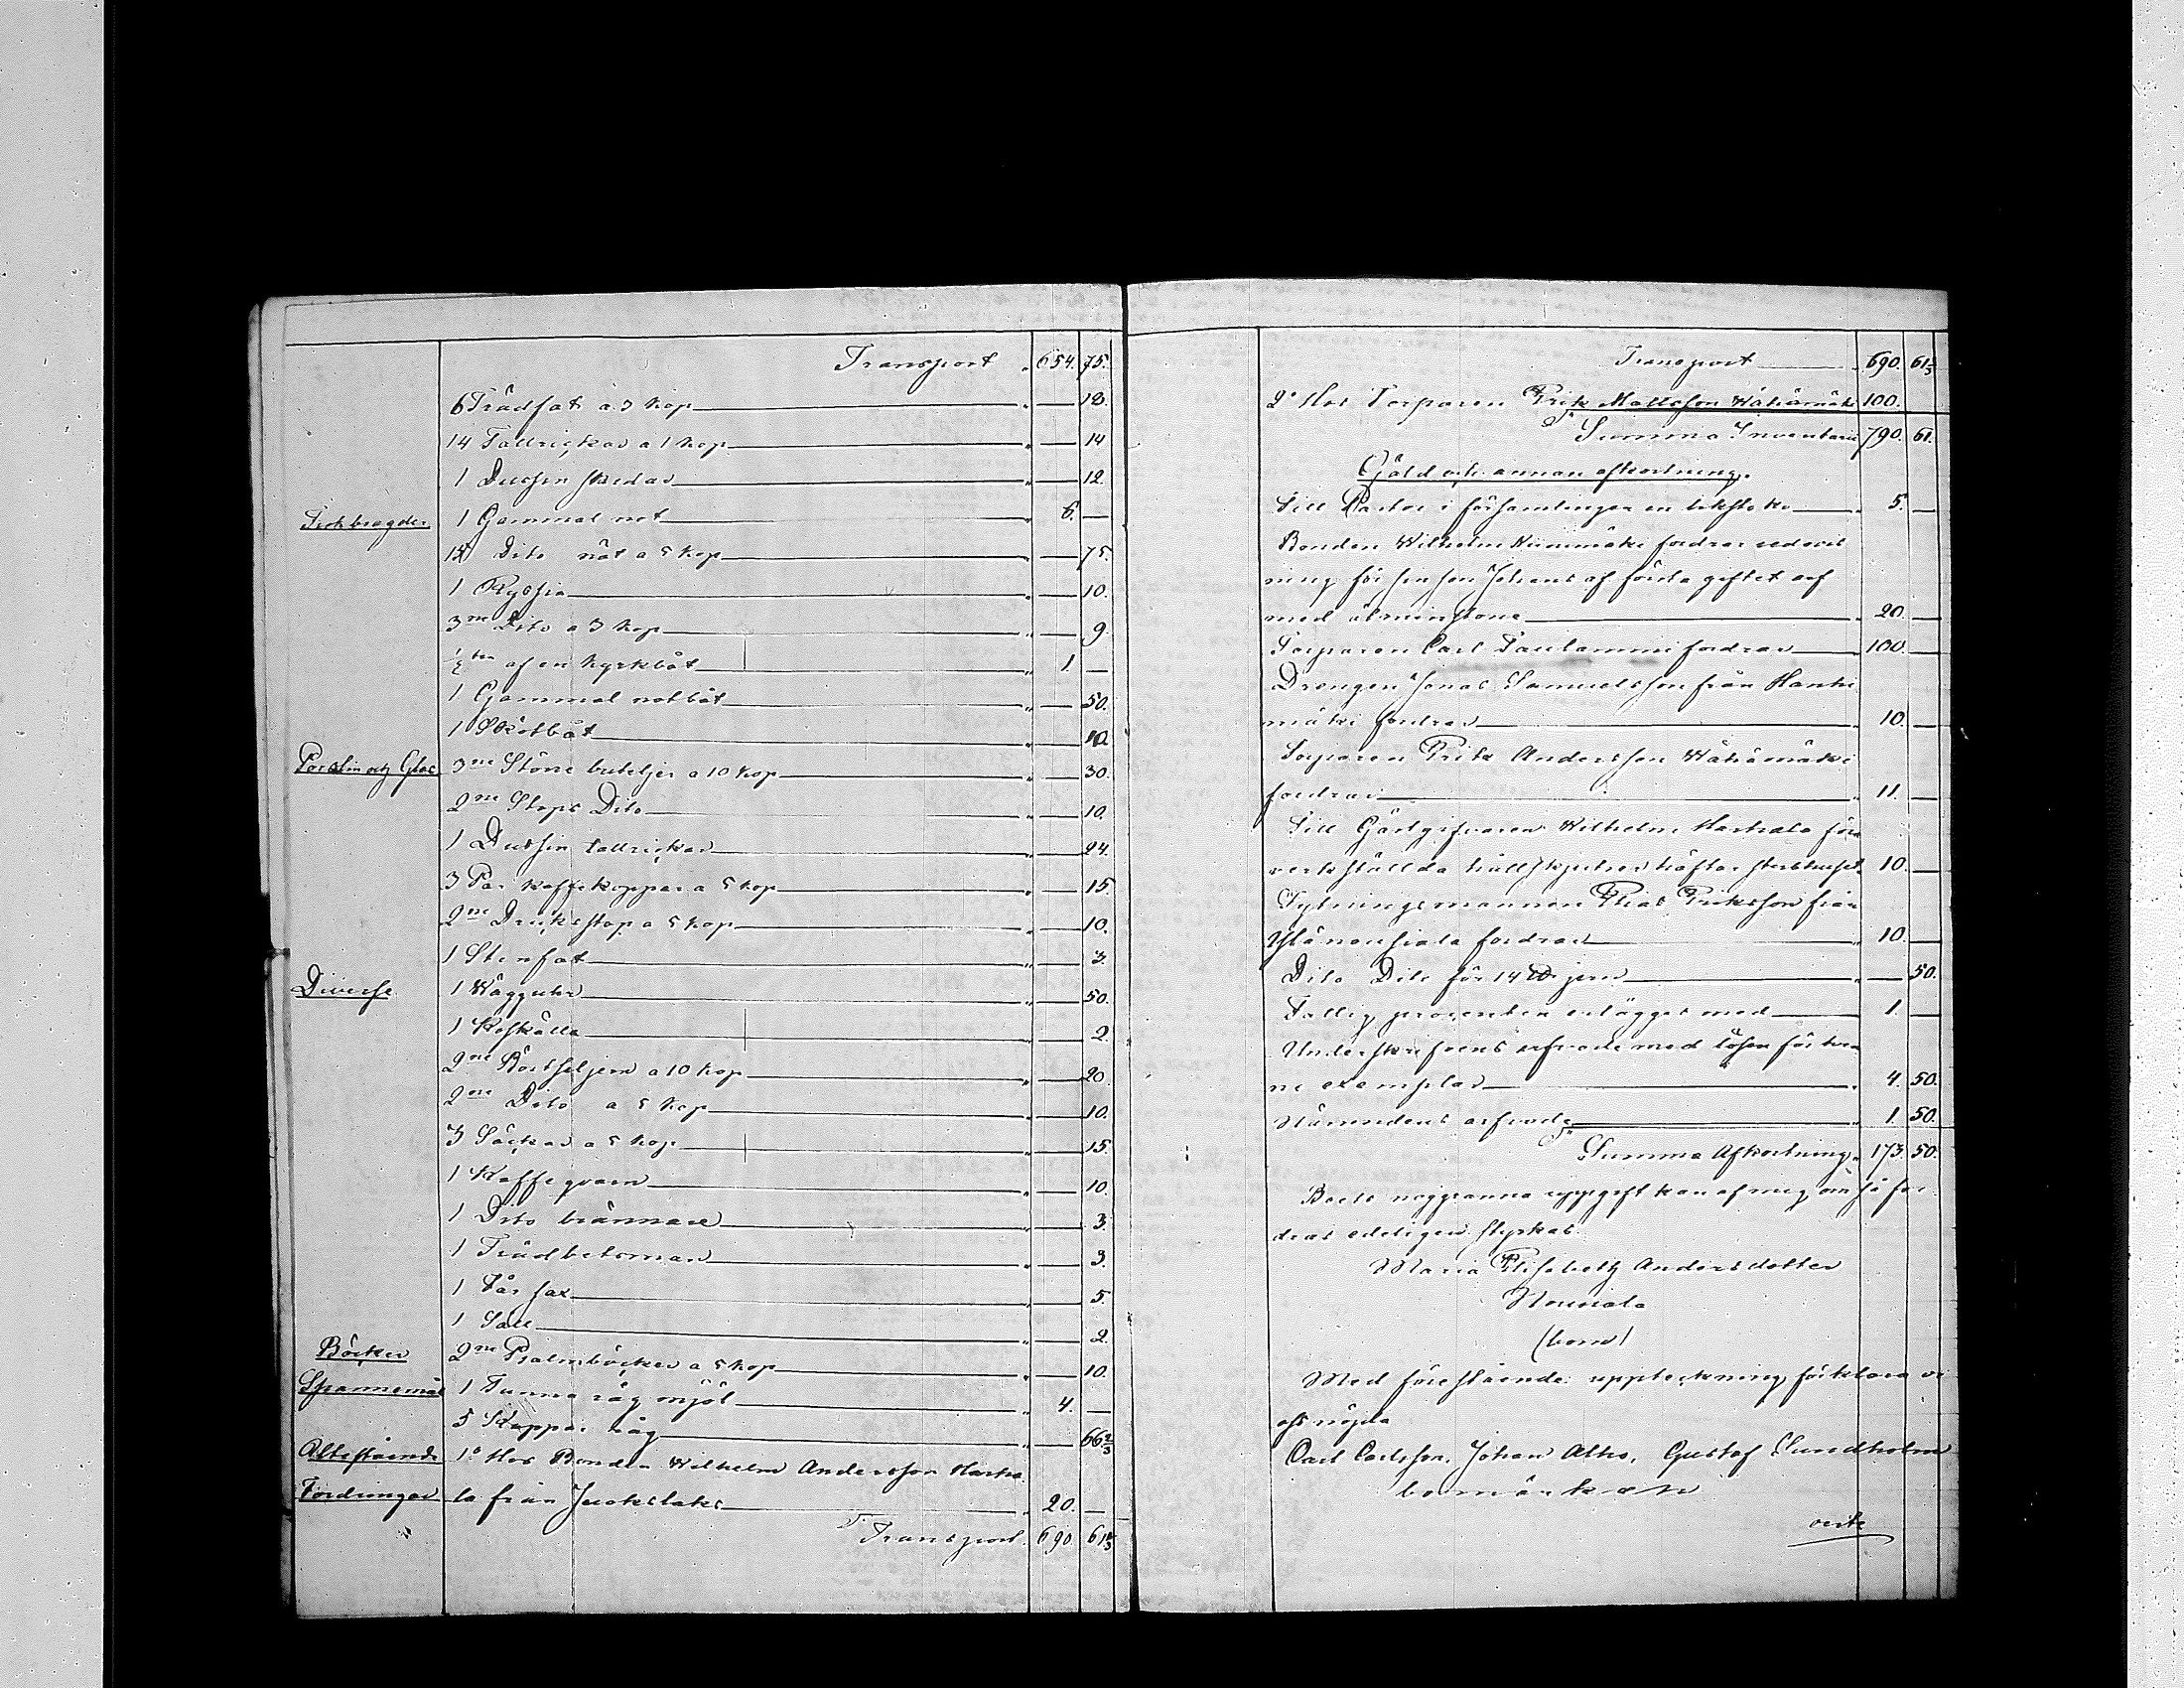 Transport " 654. 75.
6 Trädfat a 3 kop " — 18.
14 Tallrickar a 1 kop " — 14
1 Dussin skedar " — 12
Fiskbragder 1 Gammal not " 6. —
15 Dito nöt a 5 kop " — 75.
1 Ryssia " — 10.
3ne Dito a 3 kop " — 9.
af en kyrkbåt " 1. —
1 Gammal notbåt " — 50.
1 Skötbåt " — 10.
Porslin och Glas 3ne Större buteljer a 10 kop " — 30.
2ne Stops Dito " — 10.
1 Dussin tallrickar " — 24.
3 Par kaffekoppar a 5 kop " — 15.
2ne Dricksstop a 5 kop " — 10.
1 Stenfat " — 3.
Diverse 1 Wägguhr " — 50.
1 Koskälla " — 2.
2ne a 10 kop " — 20.
2ne Dito a 5 kop " — 10.
3 Säckar a 5 kop " — 15.
1 Kaffeqvarn " — 10.
1 Dito brännare " — 3.
1 " — 3.
1 Fårsax " — 5.
1 " — 2.
Böcker 2ne Psalmböcker a 5 kop " — 10.
Spannemål 1 Tunna råg mjöl " 4. —
5 Kappar råg " — 66 2/3
Utestående 1o Hos Bonden Wilhelm Andersson Harha
Fordringar la från " 20. —
Transport. 690. 61 2/3
Transport " 690. 61 2/3
2o Hos Torparen Erik Mattsson Wähämäki 100.
Summa Inventarii 790. 61.
Gäld och annan afkortning.
Till Pastor i församlingen en likstoko " 5. —
Bonden Wilhelm Niinimäki fordrar redovis
ning för sin son Johans af första giftet arf
med åtminstone " 20. —
Torparen Carl fordrar " 100. —
Drengen Jonas Samuelsson från Hanhi
mäki fordrar " 10. —
Torparen Erik Andersson Wähämäki
fordrar " 11. —
Till Gästgifvaren Wilhelm Harhala för
verkställda hållskjutser häftar sterbhuset 10. —
Sytningsmannen Elias Eriksson från
fordrar " 10. —
Dito Dito för 14 jern " — 50.
Fattig procenten erlägges med " 1. —
Underskrifvens arfvode med lösen för tven
ne exemplar " 4. 50.
Nämndens arfvode " 1. 50.
Summa Afkortning " 173. 50.
Boets noggranna uppgift kan af mig, om så for
dras edeligen styrkas.
Maria Elisabeth Andersdotter
Nousiala
(bom)
Med förestående uppteckning förklara vi
oss nöjda
Carl Carlsson, Johan Alho, Gustaf Sundholm
bomärken
verte